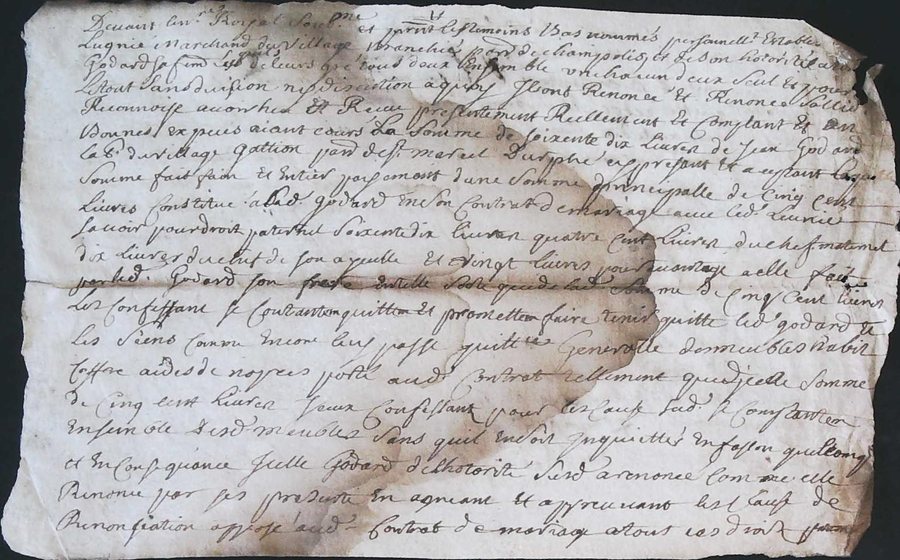 Devant le no.re Royal sous.ne et present les temoins bas nommés personnellt. Establis
marchand du village branchié par.se de champolis, et de son hotorité
Godard sa fem les de leurs gré tous deux Ensemble un chacun deux seul et pour
Le tout sans division ny discution a quoy Ils ont Renoncé Et Renonce
Reconnoisse avoir heu Et Receu presentement Reellement et Comptant Et En
Bonnes expeces aiant cours La Somme de Soixente dix Livres de Jean Godard
lab.r du village gattion par.se de S.t marcel D'urphé cy present et aceptant Laque
Somme fait fain et Entier payement d'une Somme principalle de Cinq cent
Livres Constitué a lad. Godard En son Contrat de mariage avec led.
Savoir pour droit paternel Soixente dix livres quatre Cent Livres du chef maternel
dix Livres du chef de son ayeulle Et vingt livres pour avantage a elle fait
par led. Godard son frere Estelle Sorte que de lad. Somme de Cinq Cent livres
Les Confessant se Contantent quittent Et promettent faire tenir quitte led. godard Et
les Siens Comme Encore leur passe quitte Generalle des meubles habit
Coffre aides de nopces porté aud. Contrat tellement que d'icelle Somme
de Cinq cent livres Iceux Confessant pour les Cause sud. se Contantent
Ensemble desd. meubles Sans quil En soit Inquiettés En fasson quelconq
et En Consequance Icelle Godard de l'hotorité Susd. a renoncé Comme elle
Renonce par ses presente En agreant Et appreuvant les Clause de
Renonsiation apposé aud. Contrat de mariage a tous ces droit